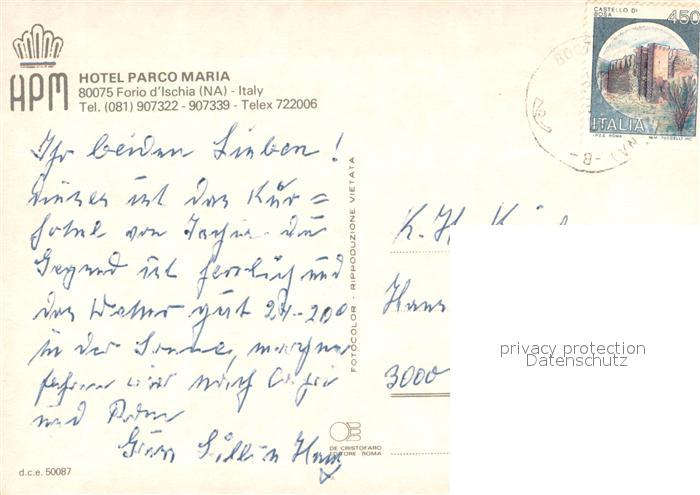 APM
HOTEL PARCO MARIA
80075 Forio d'Ischia (NA) - Italy
Tel. (081) 907322 - 907339 - Telex 722006
CASTELLO DI BOSA
450
ITALIA
I.P.Z.S. ROMA
Ihr beiden Lieben!
dieses ist das Kur=
hotel von Ischia die
Gegend ist herrlich und
das Wetter gut 24-20°
in der Sonne, morgen
fahren wir nach Capri
und Rom
FOTOCOLOR - RIPRODUZIONE VIETATA
K. H.
3000
privacy protection
Datenschutz
DE CRISTOFARO
EDITORE ROMA
d.c.e. 50087